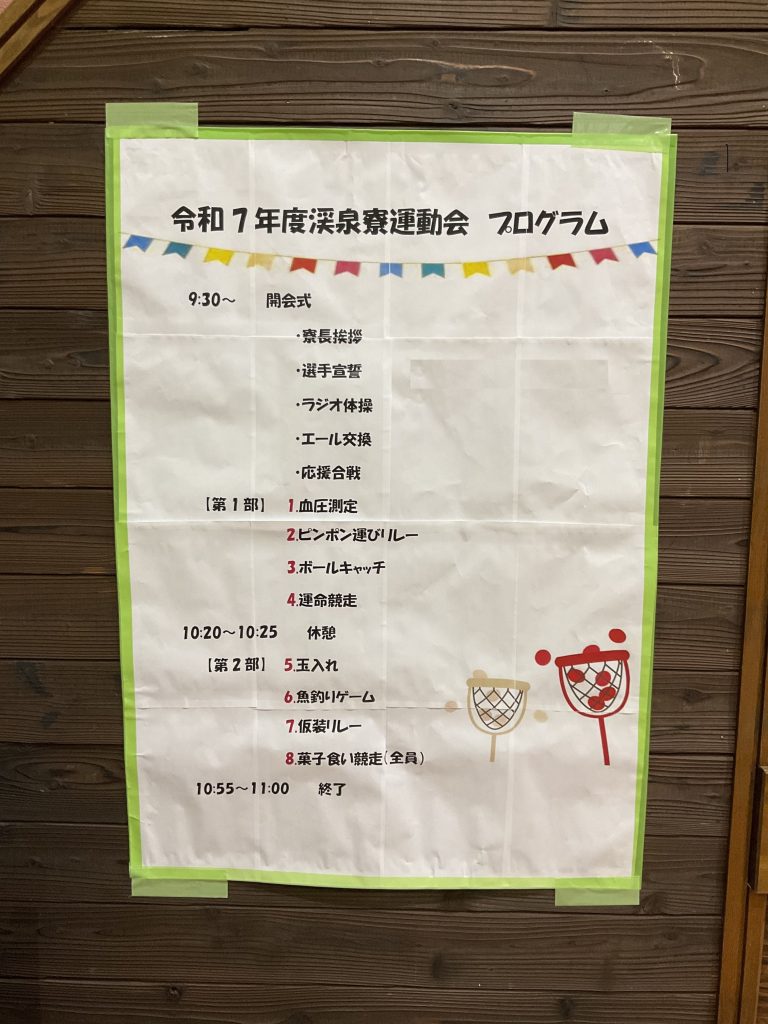 令和7年度渓泉寮運動会 プログラム
9:30～ 開会式
・寮長挨拶
・選手宣誓
・ラジオ体操
・エール交換
・応援合戦
【第1部】 1.血圧測定
2.ピンポン運びリレー
3.ボールキャッチ
4.運命競走
10:20～10:25 休憩
【第2部】 5.玉入れ
6.魚釣りゲーム
7.仮装リレー
8.菓子食い競走(全員)
10:55～11:00 終了